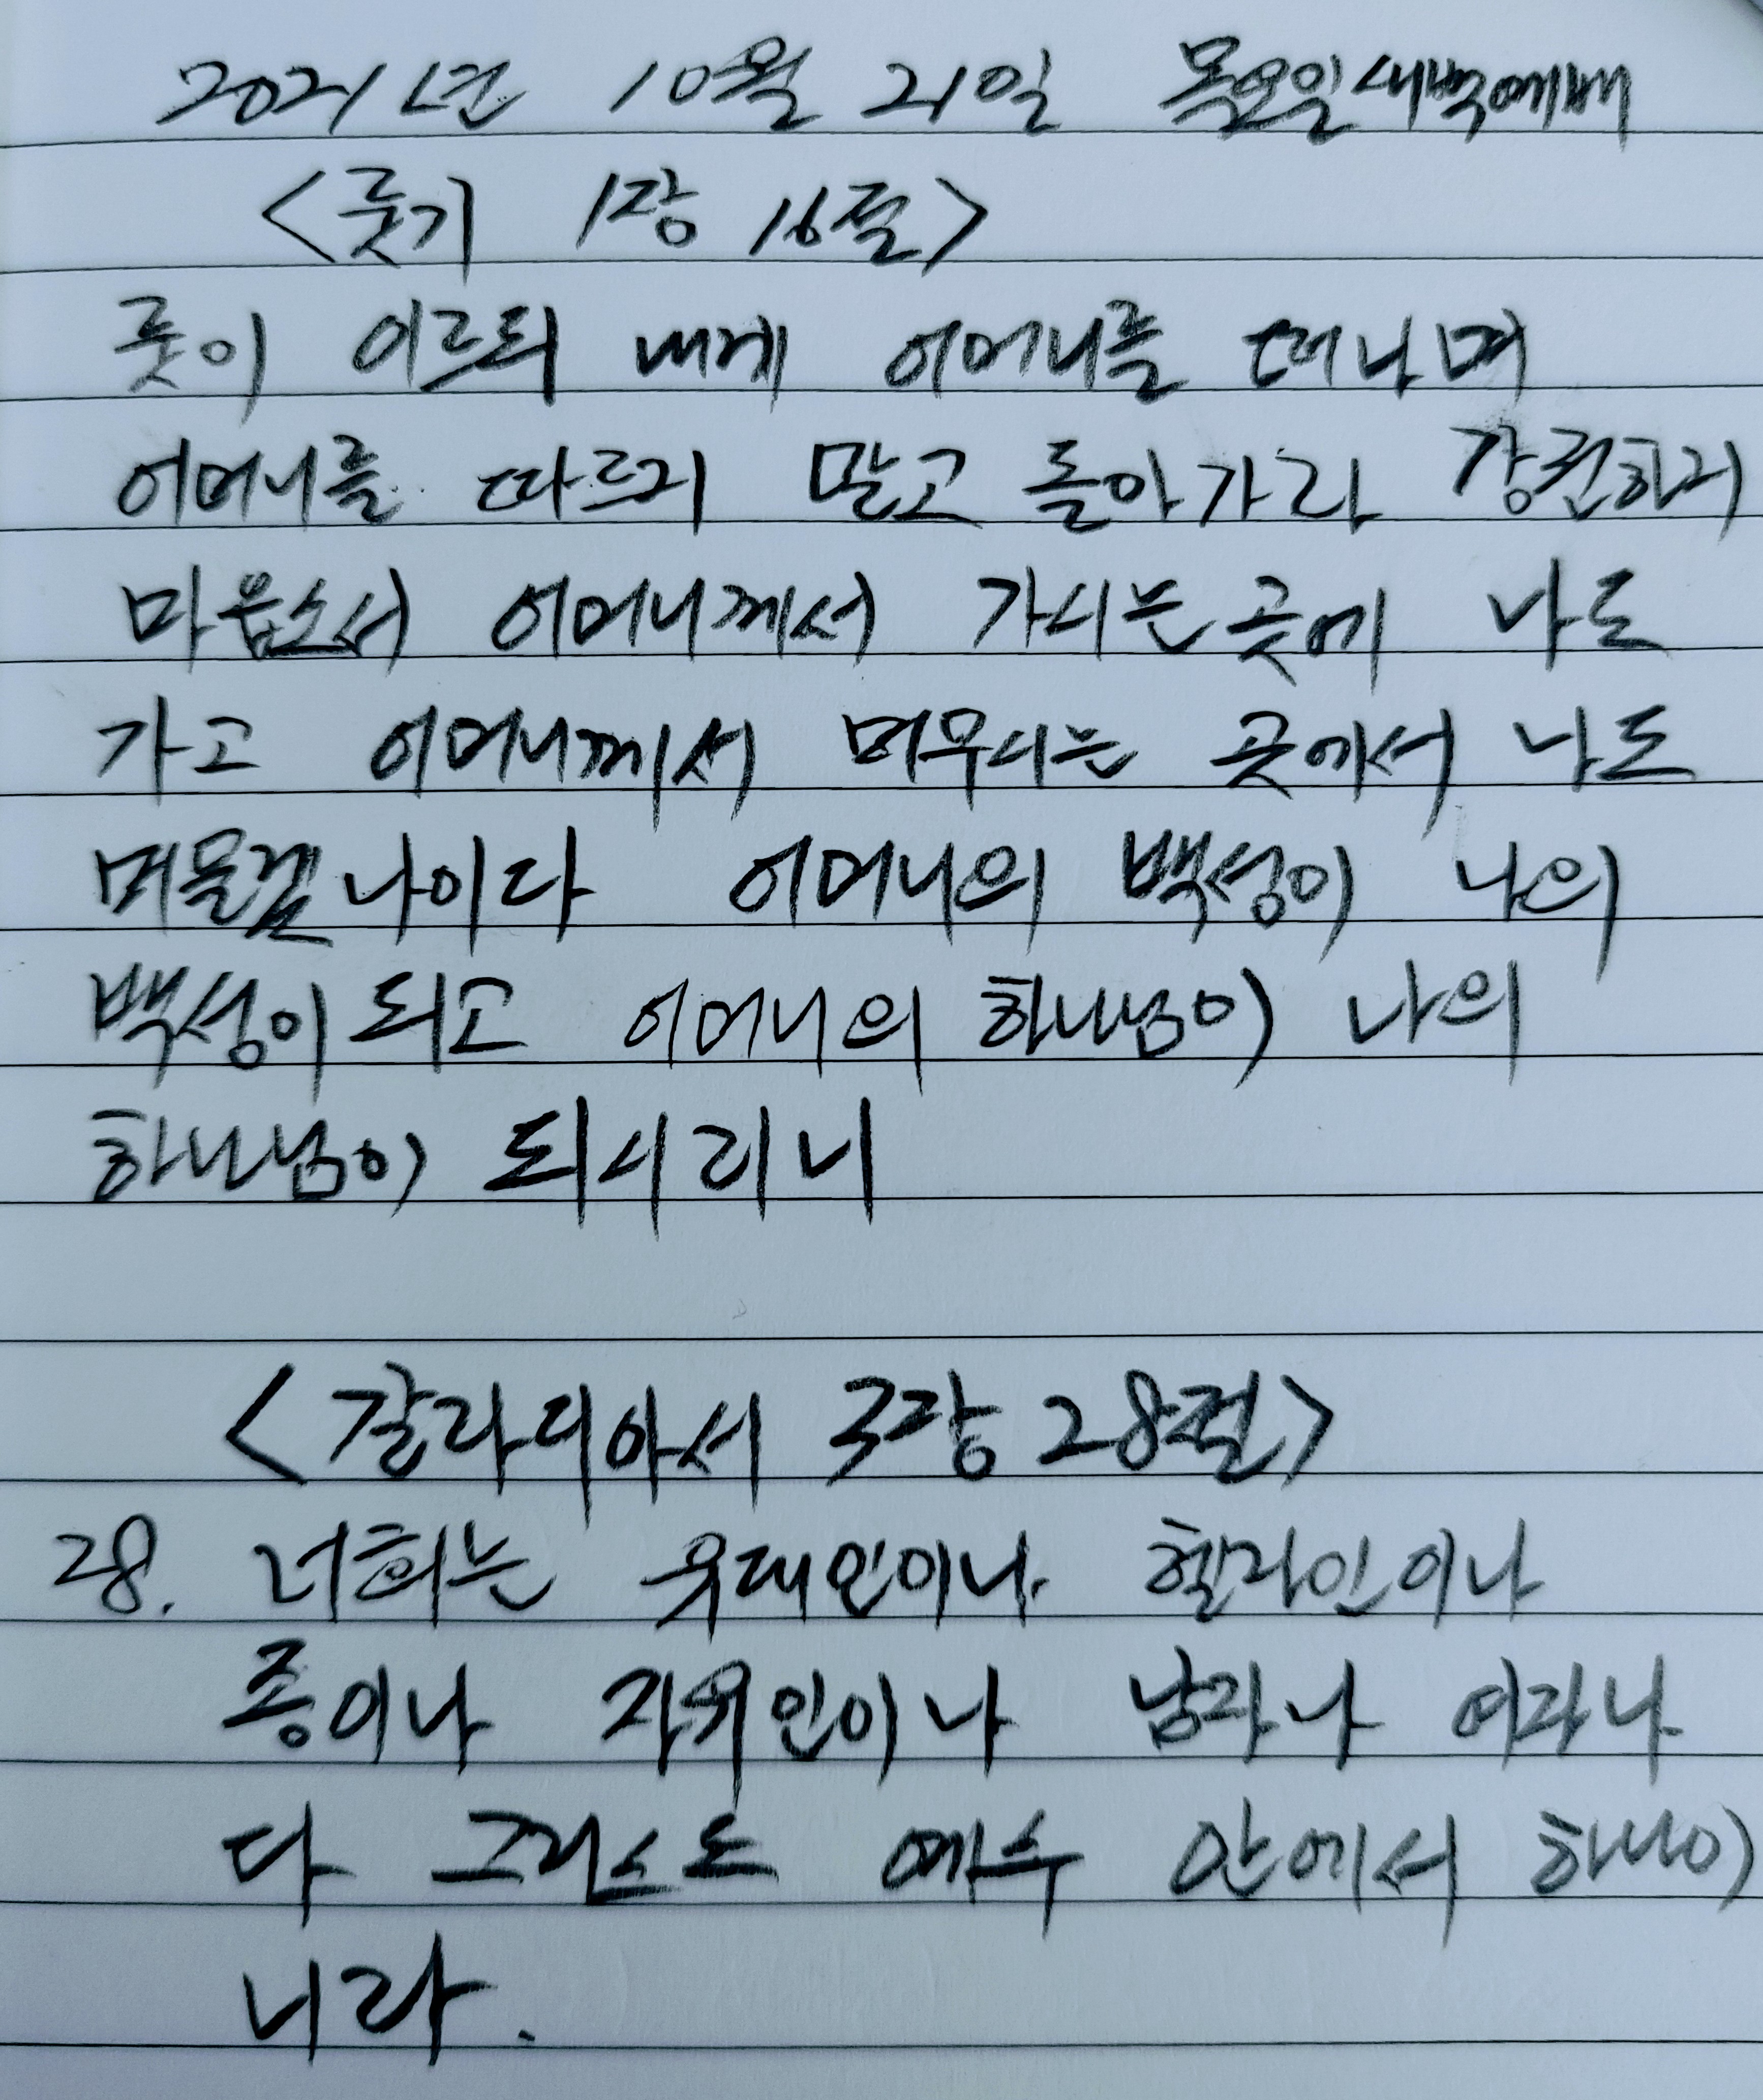 2021년 10월 21일 목요일새벽예배
<룻기 1장 16절>
룻이 이르되 내게 어머니를 떠나며
어머니를 따르지 말고 돌아가라 강권하지
마옵소서 어머니께서 가시는곳에 나도
가고 어머니께서 머무시는 곳에서 나도
머물겠나이다 어머니의 백성이 나의
백성이 되고 어머니의 하나님이 나의
하나님이 되시리니
<갈라디아서 3장 28절>
28. 너희는 유대인이나 헬라인이나
종이나 자유인이나 남자나 여자나
다 그리스도 예수 안에서 하나이
니라.